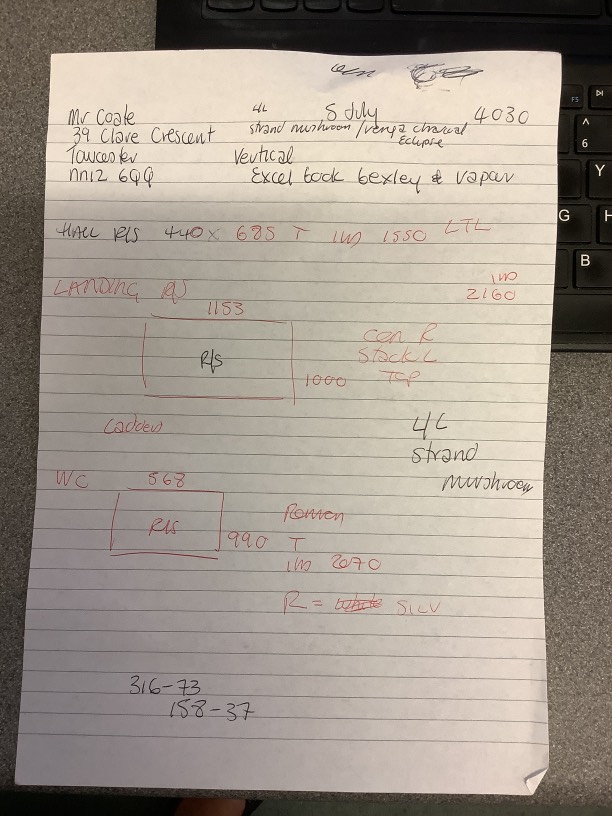 Mr Coate 4L 5 July 4030
39 Clare Crescent strand mushroom / charcoal
Eclipse
Towcester Vertical
NN12 6QQ Excel book bexley & vapour
HALL R/S 440 x 685 T IW 1550 LTL
LANDING R/S IW
2160
1153
R/S
con R
Stack L
1000 TOP
Ladders
4L
strand
mushroom
WC 568
R/S
Roman
990 T
IW 2070
R = white SILV
316-73
158-37
F5
^
6
Y
G
H
B